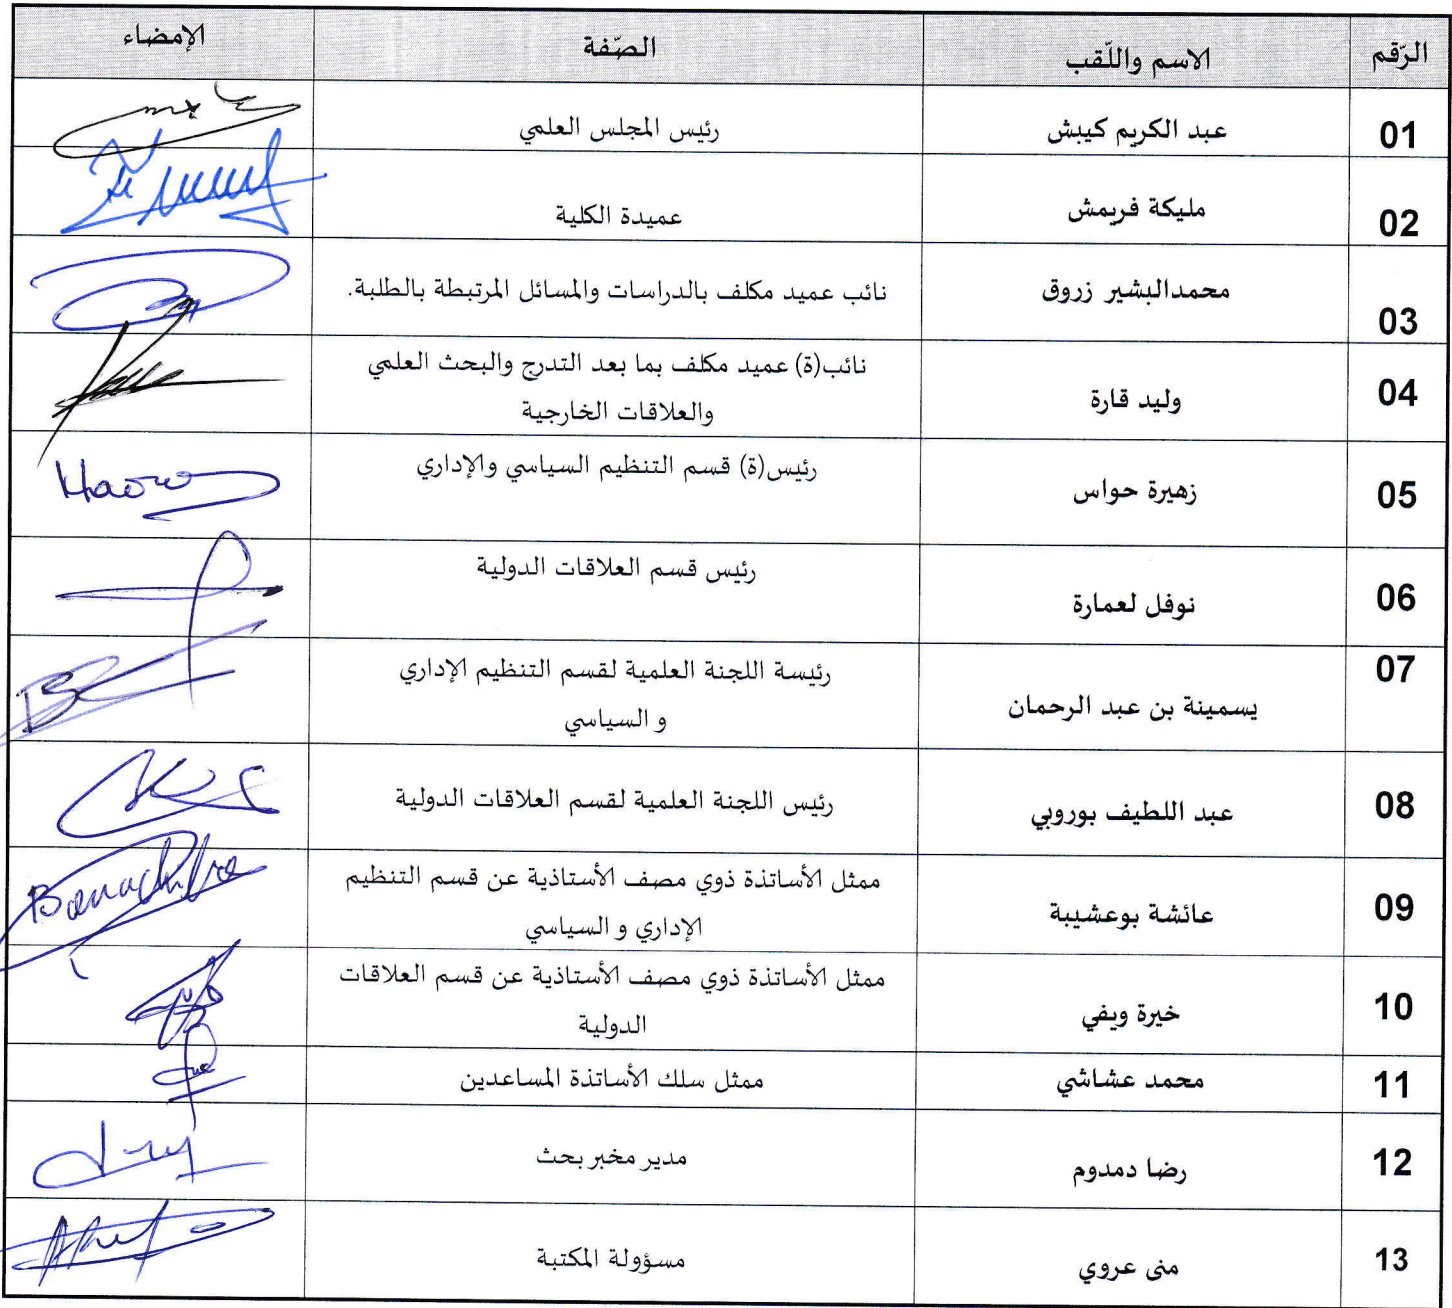 الرّقم الاسم واللّقب الصّفة الإمضاء
01 عبد الكريم كيبش رئيس المجلس العلمي
02 مليكة فريمش عميدة الكلية
03 محمدالبشير زروق نائب عميد مكلف بالدراسات والمسائل المرتبطة بالطلبة.
04 وليد قارة نائب(ة) عميد مكلف بما بعد التدرج والبحث العلمي
والعلاقات الخارجية
05 زهيرة حواس رئيس(ة) قسم التنظيم السياسي والإداري
06 نوفل لعمارة رئيس قسم العلاقات الدولية
07 يسمينة بن عبد الرحمان رئيسة اللجنة العلمية لقسم التنظيم الإداري
و السياسي
08 عبد اللطيف بوروبي رئيس اللجنة العلمية لقسم العلاقات الدولية
09 عائشة بوعشيبة ممثل الأساتذة ذوي مصف الأستاذية عن قسم التنظيم
الإداري و السياسي
10 خيرة ويفي ممثل الأساتذة ذوي مصف الأستاذية عن قسم العلاقات
الدولية
11 محمد عشاشي ممثل سلك الأساتذة المساعدين
12 رضا دمدوم مدير مخبر بحث
13 منى عروي مسؤولة المكتبة